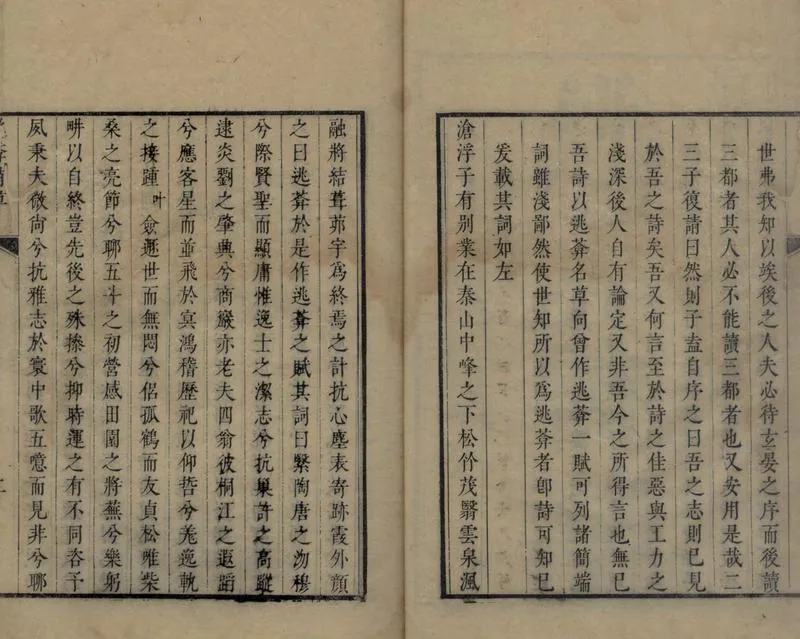 世弗我知以竢後之人夫必待玄晏之序而後讀
三都者其人必不能讀三都者也又安用是哉二
三子復請曰然則子盍自序之曰吾之志則已見
於吾之詩矣吾又何言至於詩之佳惡與工力之
淺深後人自有論定又非吾今之所得言也無已
吾詩以逃莽名草向曾作逃莽一賦可列諸簡端
詞雖淺鄙然使世知所以爲逃莽者卽詩可知已
爰載其詞如左
滄浮子有別業在泰山中峰之下松竹茂翳雲泉渢
融將結葺茆宇爲終焉之計抗心塵表寄跡霞外顏
之曰逃莽於是作逃莽之賦其詞曰繄陶唐之沕穆
兮際賢聖而顯庸惟逸士之潔志兮抗巢許之高蹤
逮炎劉之肇典兮商巖亦老夫四翁彼桐江之遐蹈
兮應客星而並飛於冥鴻稽歷祀以仰哲兮羌逸軌
之接踵叶僉遯世而無悶兮侶孤鶴而友貞松雖柴
桑之亮節兮聊五斗之初營感田園之將蕪兮樂躬
畊以自終豈先後之殊操兮抑時運之有不同咨予
夙秉夫微尙兮抗雅志於寰中歌五噫而見非兮聊